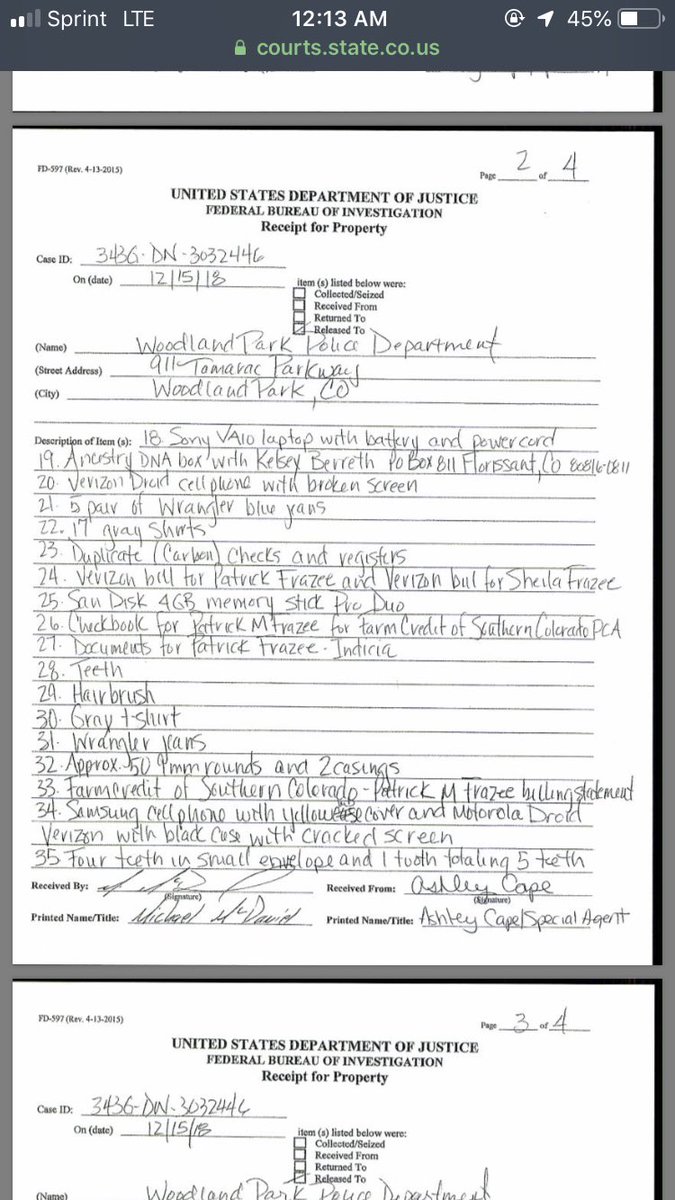 Sprint LTE 12:13 AM 45%
courts.state.co.us
FD-597 (Rev. 4-13-2015)
Page 2 of 4
UNITED STATES DEPARTMENT OF JUSTICE
FEDERAL BUREAU OF INVESTIGATION
Receipt for Property
Case ID: 343G-DN-3032446
On (date) 12/15/18
item (s) listed below were:
Collected/Seized
Received From
Returned To
Released To
(Name) Woodland Park Police Department
(Street Address) 911 Tamarac Parkway
(City) Woodland Park, CO
Description of Item (s): 18. Sony VAIO laptop with battery and power cord
19. Ancestry DNA box with Kelsey Berreth PO Box 811 Florissant, CO 80816-0811
20. Verizon Droid cell phone with broken screen
21. 5 pair of Wrangler blue jeans
22. 17 gray shirts
23. Duplicate (Carbon) Checks and registers
24. Verizon bill for Patrick Frazee and Verizon bill for Sheila Frazee
25. San Disk 4GB memory stick Pro Duo
26. Checkbook for Patrick M Frazee for Farm Credit of Southern Colorado PCA
27. Documents for Patrick Frazee - Indicia
28. Teeth
29. Hairbrush
30. Gray t-shirt
31. Wrangler jeans
32. Approx. 50 9mm rounds and 2 casings
33. Farm credit of Southern Colorado - Patrick M Frazee billing statement
34. Samsung cell phone with yellow case cover and Motorola Droid
Verizon with black case with cracked screen
35 Four teeth in small envelope and 1 tooth totaling 5 teeth
Received By:
(Signature)
Received From: Ashley Cape
(Signature)
Printed Name/Title: Michael McDavid
Printed Name/Title: Ashley Cape/Special Agent
FD-597 (Rev. 4-13-2015)
Page 3 of 4
UNITED STATES DEPARTMENT OF JUSTICE
FEDERAL BUREAU OF INVESTIGATION
Receipt for Property
Case ID: 343G-DN-3032446
On (date) 12/15/18
item (s) listed below were:
Collected/Seized
Received From
Returned To
Released To
(Name) Woodland Park Police Department